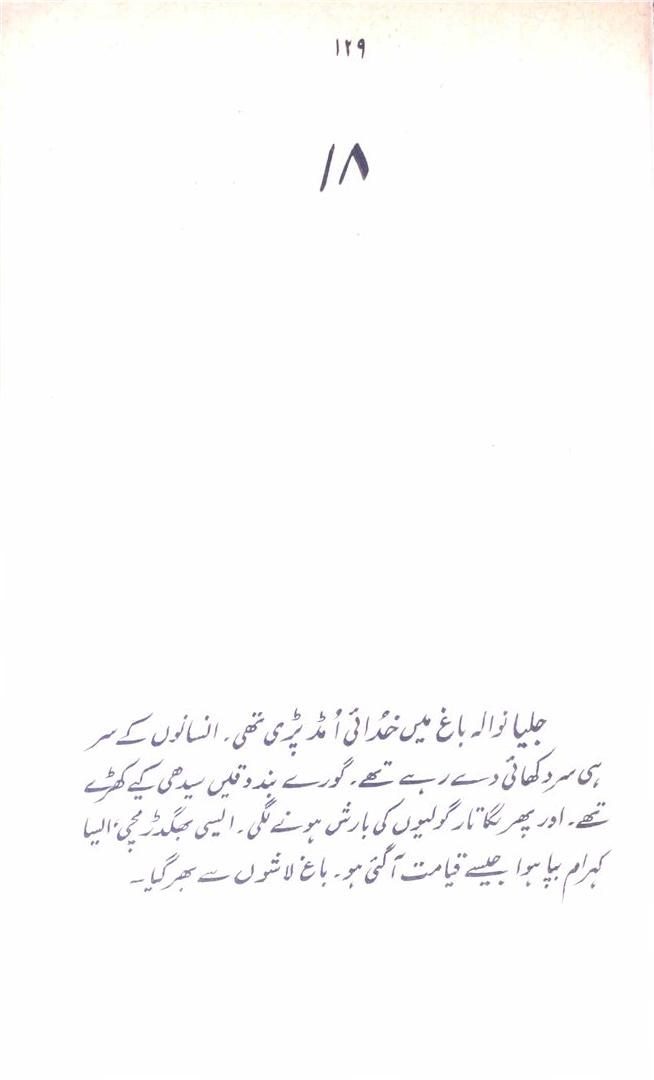 ۱۲۹
۱۸
جلیانوالہ باغ میں خُدائی اُمڈ پڑی تھی۔ انسانوں کے سر
ہی سر دکھائی دے رہے تھے۔ گورے بندوقیں سیدھی کیے کھڑے
تھے۔ اور پھر لگاتار گولیوں کی بارش ہونے لگی۔ ایسی بھگدڑ مچی، ایسا
کہرام بپا ہوا جیسے قیامت آگئی ہو۔ باغ لاشوں سے بھر گیا۔